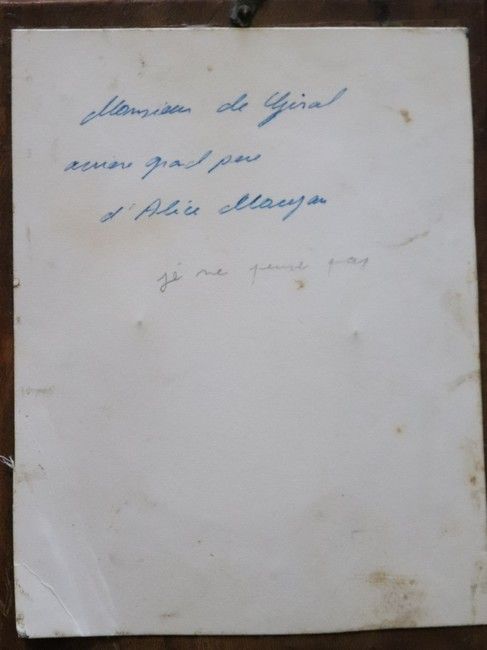 Monsieur de Giral
arriere grad pere
d'Alice Mauzan
je ne pense pas